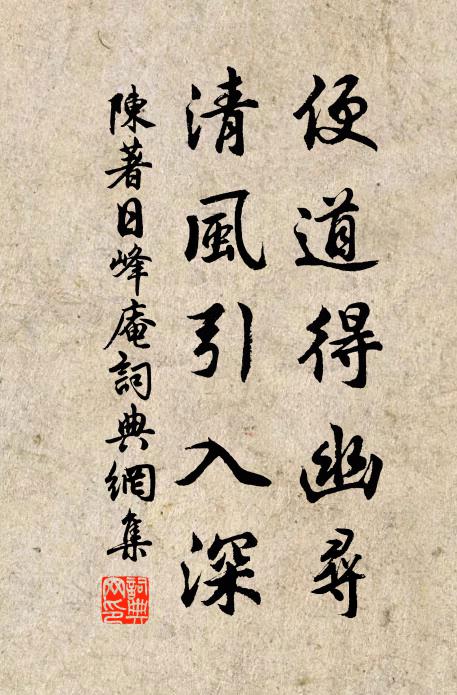 便道得幽尋
清風引入深
陳著日峰庵詞典網集
詞典網印